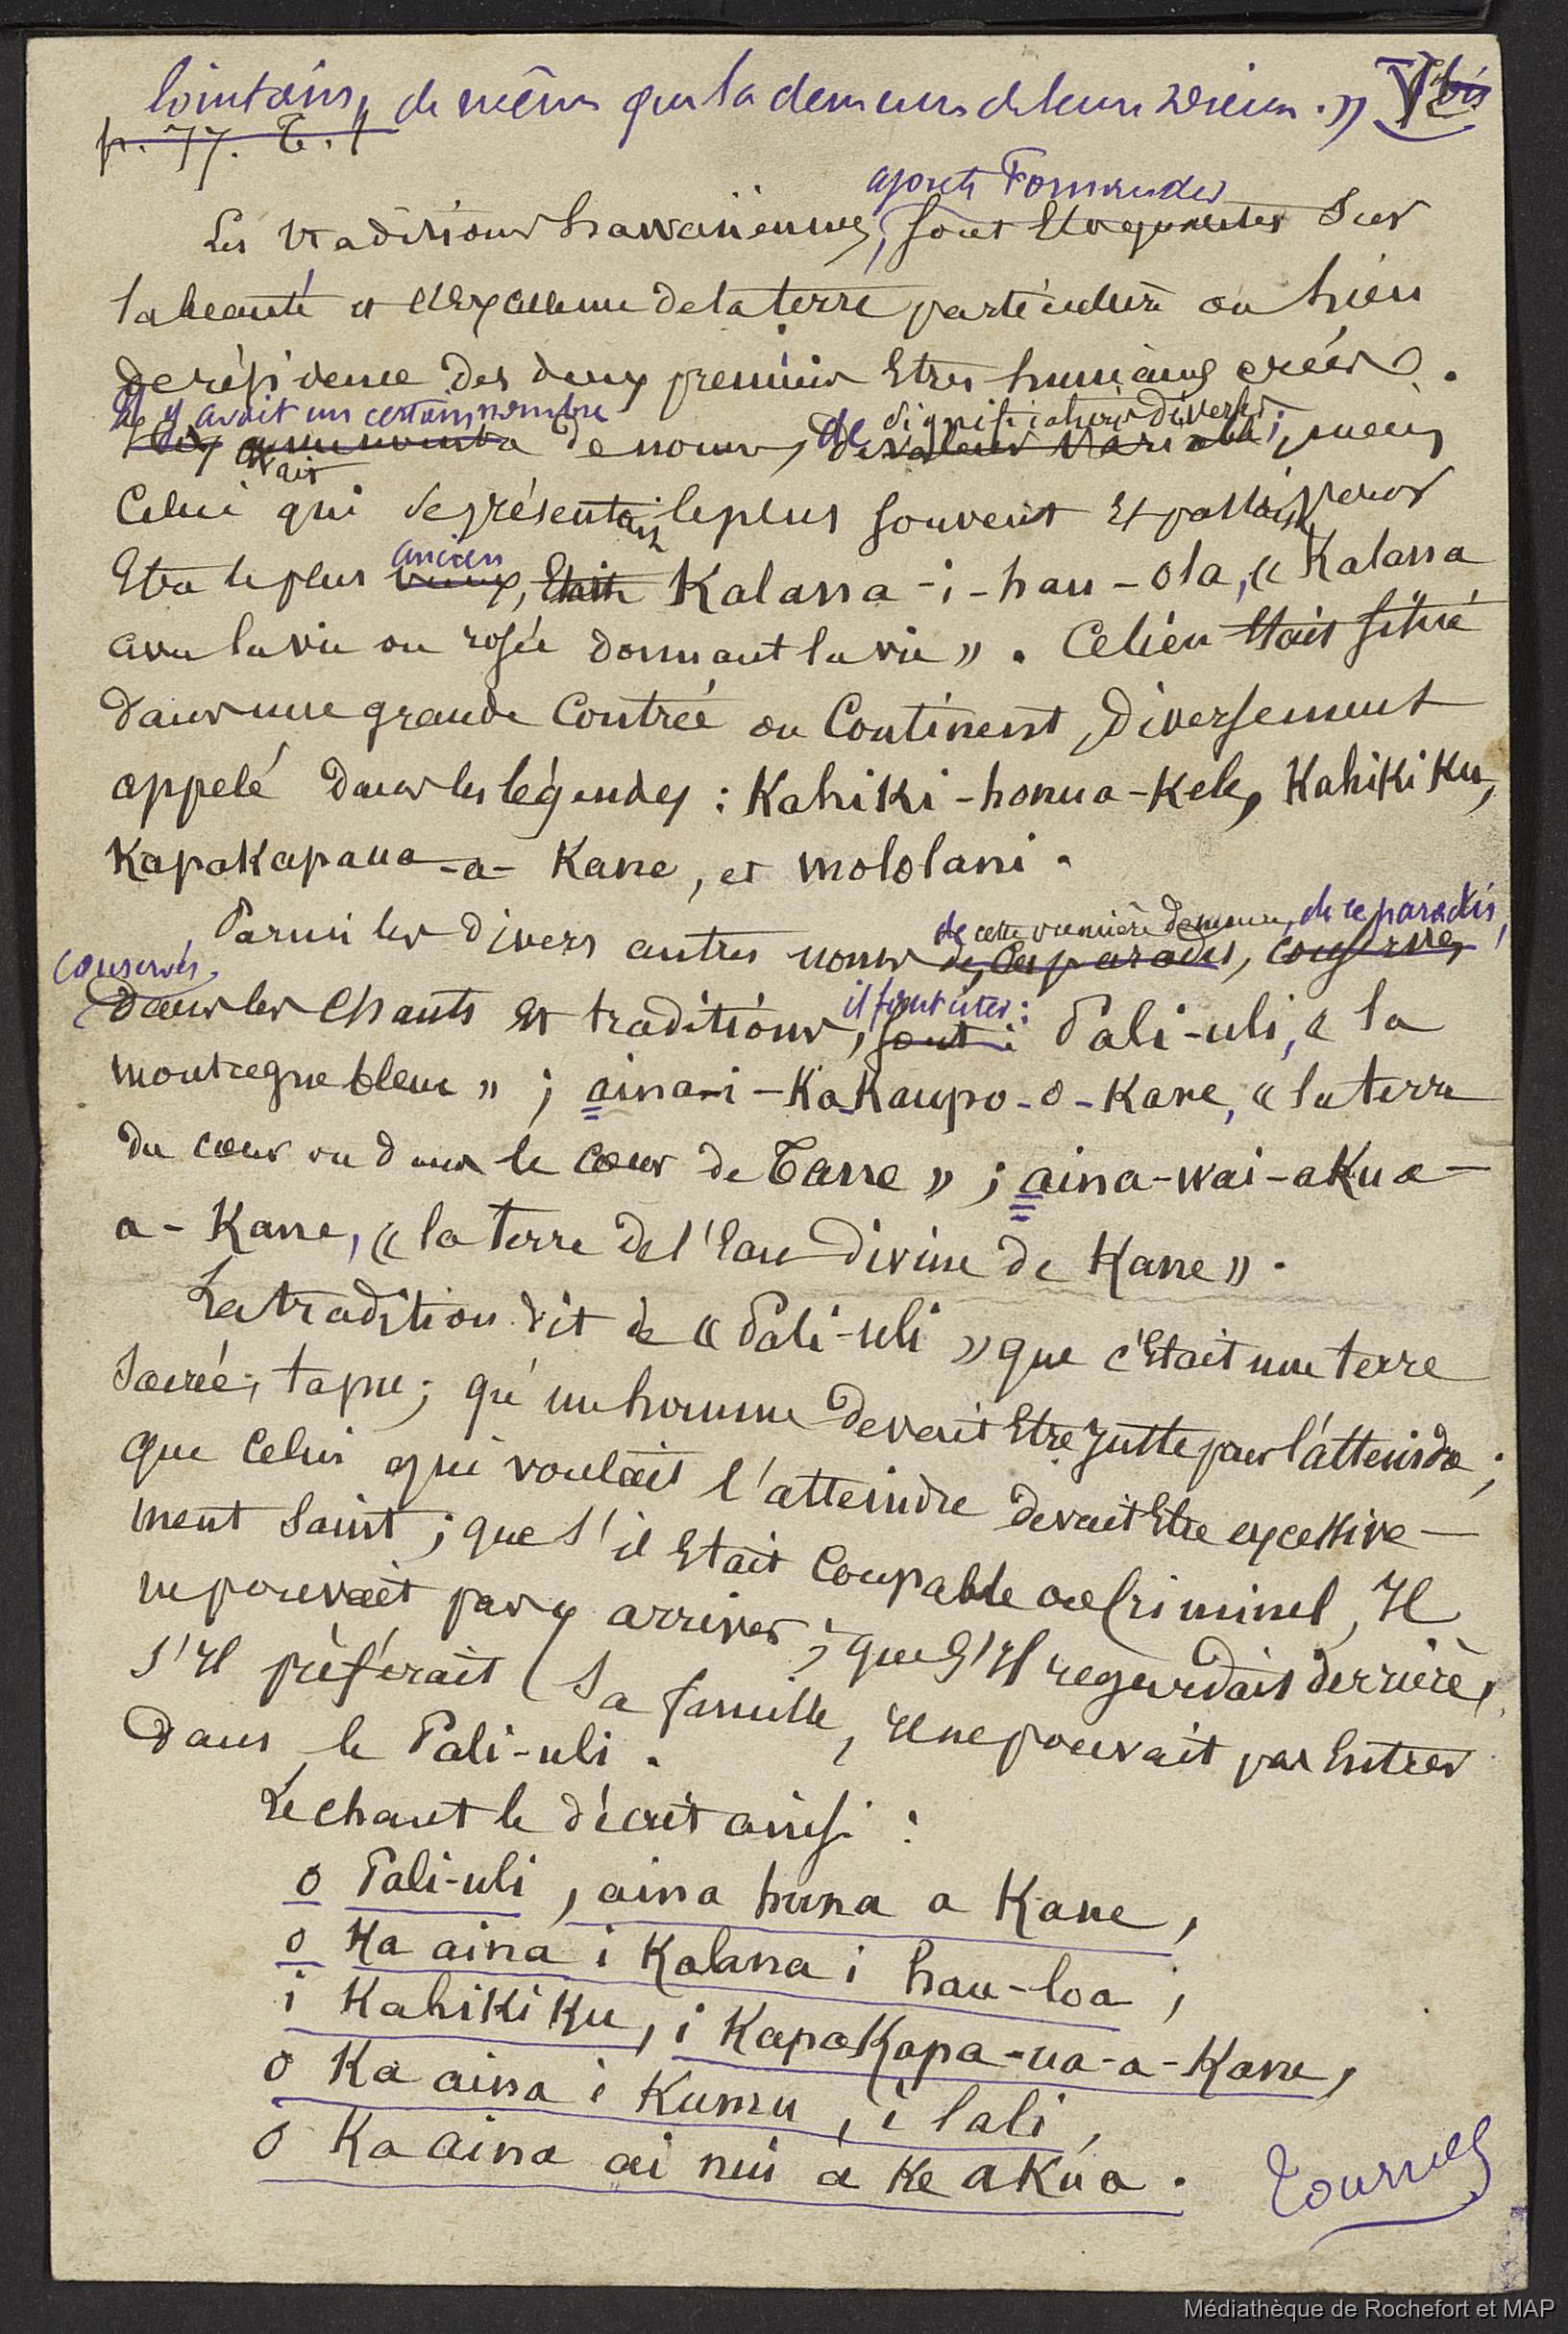 lointains, de même que la demeure de leurs Dieux. »
p. 77. T. 1
ajoute Fornander
Les traditions hawaiiennes, sont Eloquentes Sur
la beauté et l'Excellence de la terre particulière ou lieu
de résidence des deux premiers Etres humains créés.
Il y avait un certain nombre de noms, de significations diverses; mais
Celui qui se présentait le plus souvent Et passait pour
Etre le plus ancien, Etait Kalana-i-hau-ola, « Kalana
avec la vie ou rosée donnant la vie ». Ce lieu Etait situé
dans une grande Contrée ou Continent, diversement
appelé dans les légendes : Kahiki-honua-Kele, KahikiKu,
Kapakapaua-a-Kane, et Mololani.
Parmi les divers autres noms de cette première demeure, de ce paradis,
conservés
dans les Chants Et traditions, il faut citer : Pali-uli, « la
montagne bleue » ; aina-i-KaKaupo-o-Kane, « la terre
du coeur ou dans le coeur de Tane » ; aina-wai-aKua-
a-Kane, « la terre de l'Eau divine de Kane ».
La tradition dit de « Pali-uli » que c'Etait une terre
Sacrée, tapu ; qu'un homme devait Etre juste pour l'atteindre ;
que Celui qui voulait l'atteindre devait Etre excessive-
ment Saint ; que S'il Etait Coupable ou Criminel, Il
ne pouvait pas y arriver ; que S'Il regardait derrière,
S'Il préférait Sa famille, Il ne pouvait pas Entrer
dans le Pali-uli.
Le chant le décrit ainsi :
O Pali-uli, aina huna a Kane,
O Ka aina i Kalana i hau-loa,
i KahikiKu, i KapaKapa-ua-a-Kane,
O Ka aina i Kumu, i lali,
O Ka aina ai nui a Ke aKua.
Tournez
Médiathèque de Rochefort et MAP